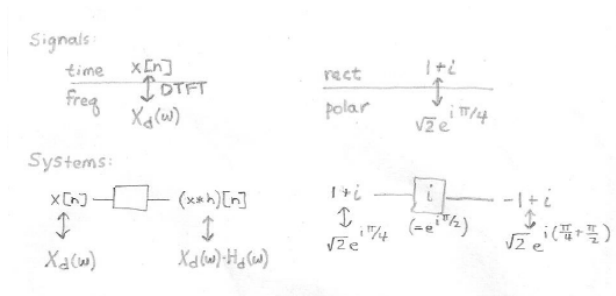 Signals:
time x[n]
DTFT
freq X_d(ω)
rect 1+i
polar √2 e^{iπ/4}
Systems:
x[n] (x*h)[n]
X_d(ω) X_d(ω)·H_d(ω)
1+i i -1+i
√2 e^{iπ/4} (=e^{iπ/2}) √2 e^{i(π/4+π/2)}